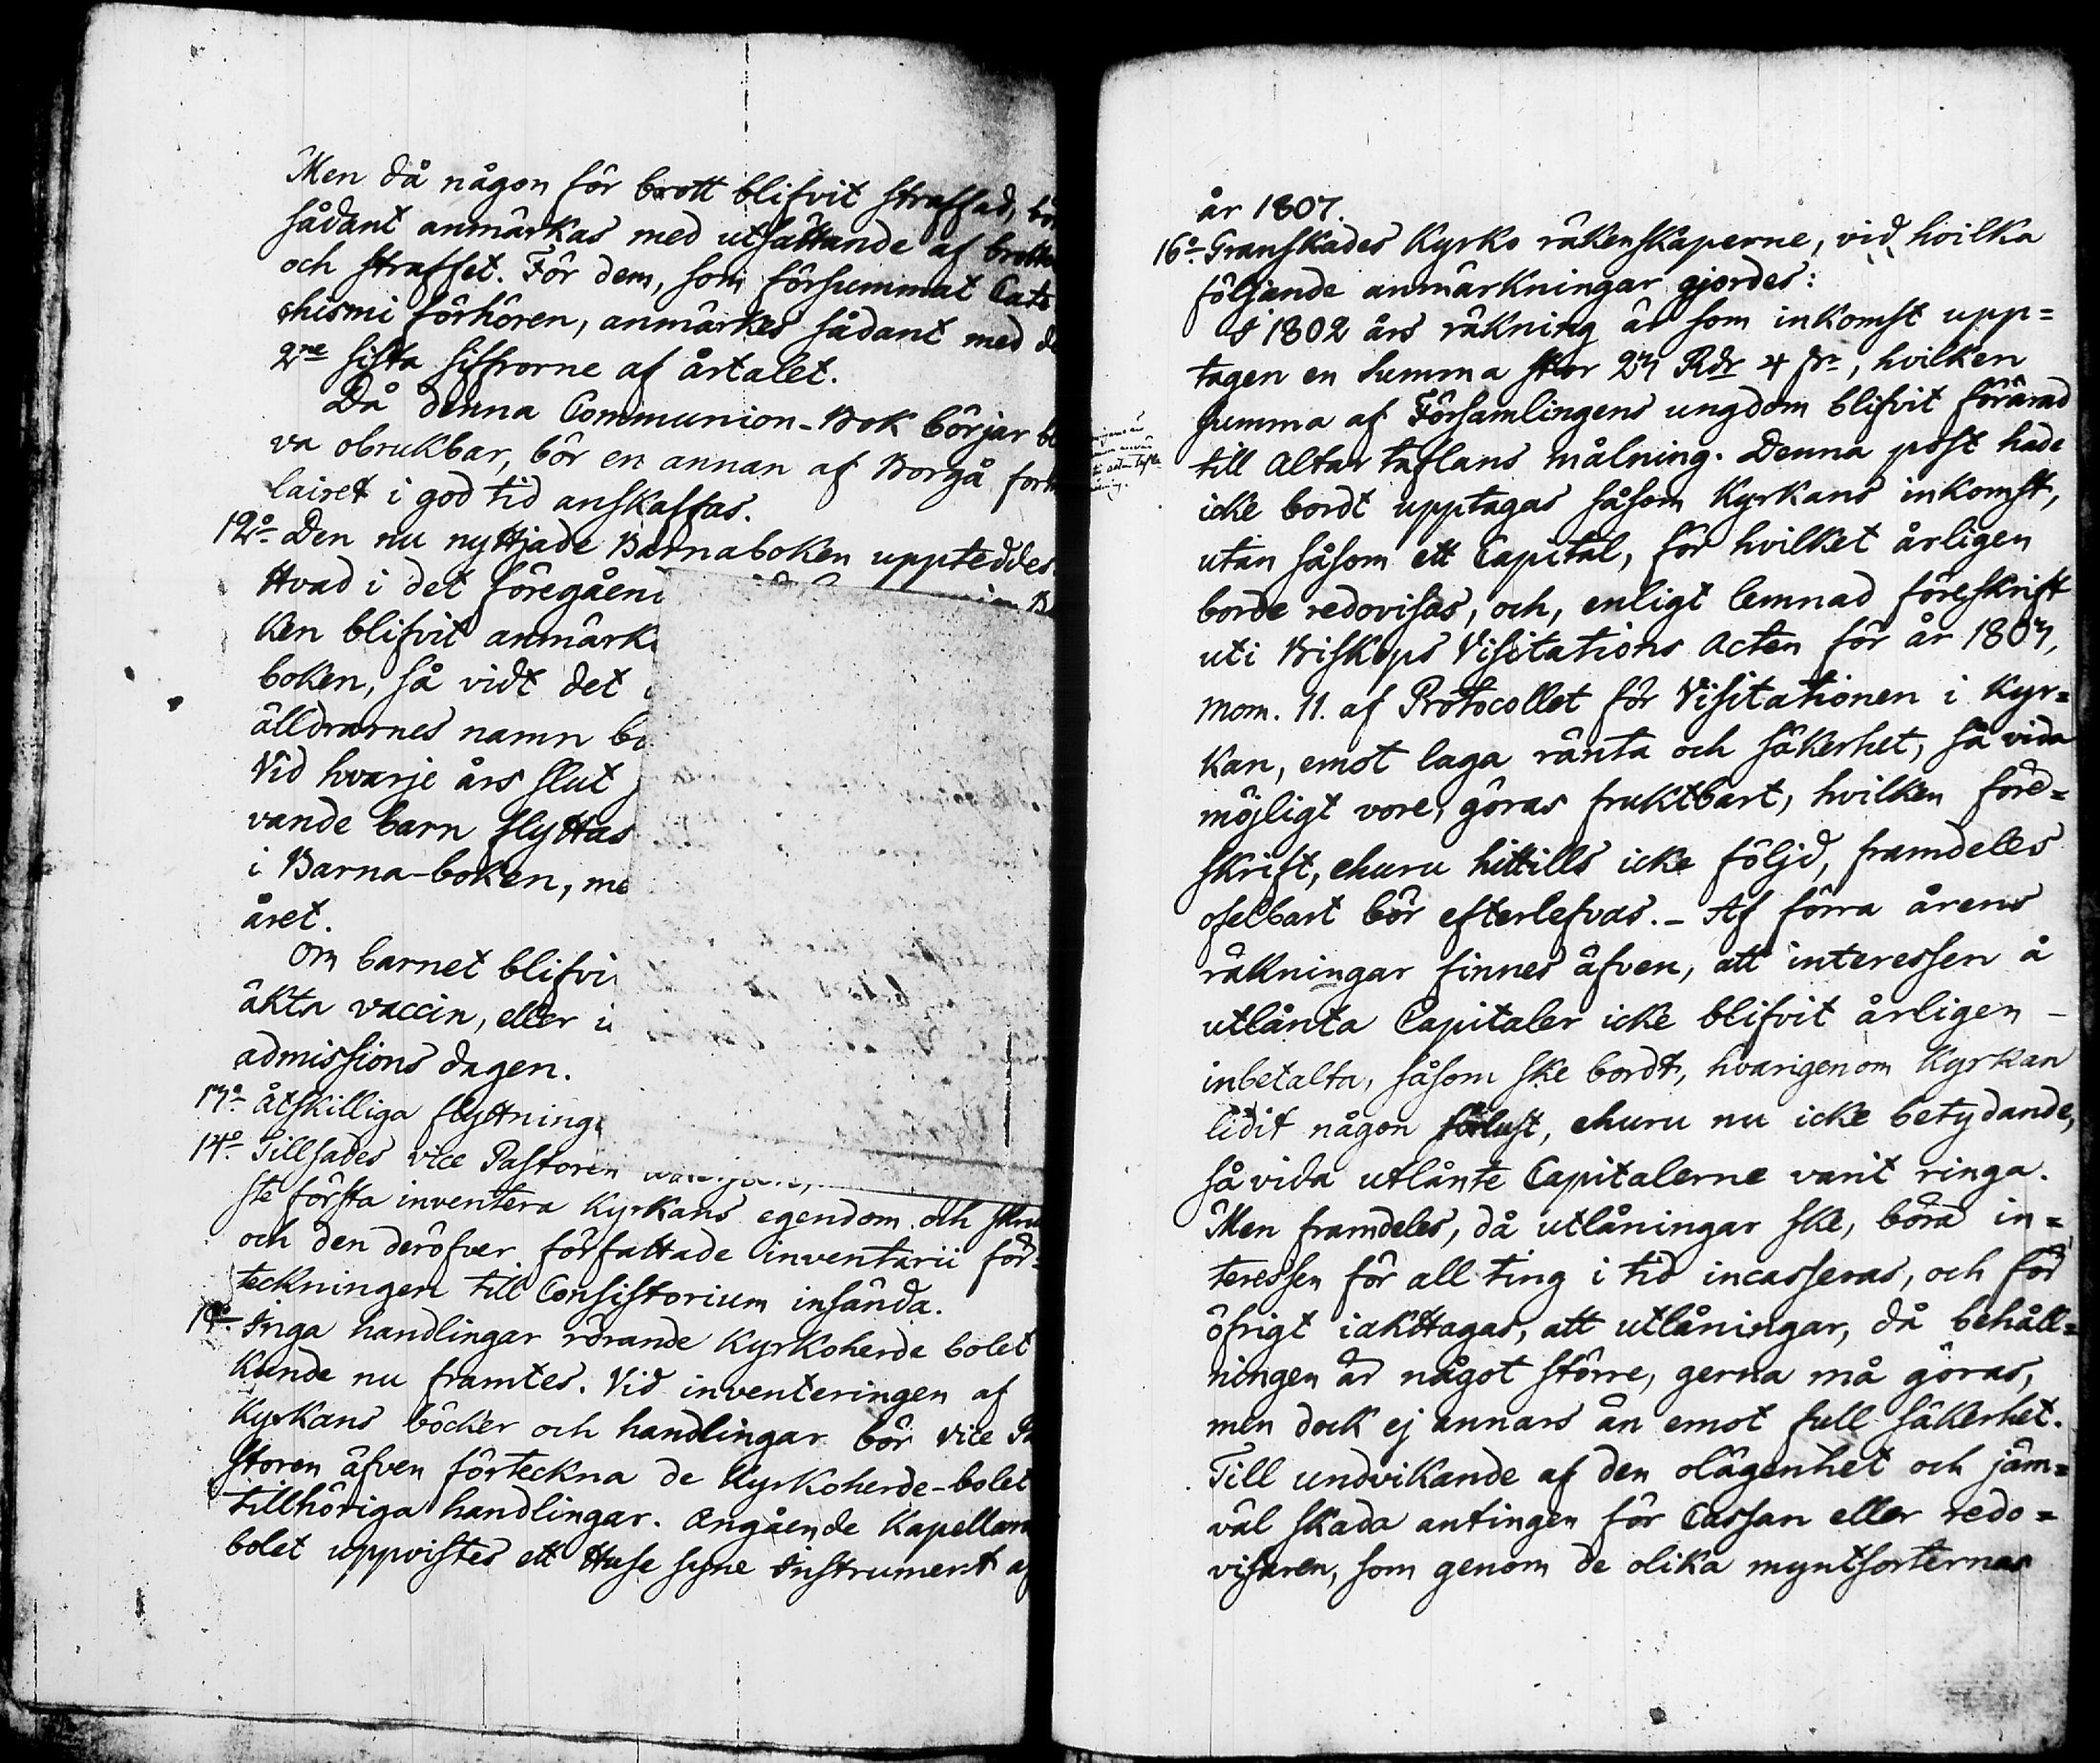 Men då någon för brott blifvit straffad, bör
sådant anmärkas med utsättande af brottet
och straffet. För dem, som försummat Cate
chismi förhören, anmärkes sådant med de
2ne sista siffrorne af årtalet.
Då denna Communion-Bok börjar bli
va obrukbar, bör en annan af Borgå formu
lairet i god tid anskaffas.
12o Den nu nyttjade Barnaboken uppteddes.
Hvad i det föregåen
ken blifvit anmärk
boken, så vidt det
älldrarnes namn b
Vid hvarje års slut
vande barn flyttas
i Barna-boken, me
året.
Om barnet blifvi
äkta vaccin, eller
admissions dagen.
13o Åtskilliga flyttning
14o Tillsades vice Pastoren
ste första inventera Kyrkans egendom och skru
och den deröfver författade inventarii för=
teckningen till Consistorium insända.
15o Inga handlingar rörande Kyrkoherde bolet
kunde nu framtes. Vid inventeringen af
Kyrkans böcker och handlingar bör vice Pa
storen äfven förteckna de Kyrkoherde-bolet
tillhöriga handlingar. Angående Kapellans
bolet uppvistes ett Huse syne Instrument af
år 1807.
16o Granskades Kyrko räkenskaperne, vid hvilka
följande anmärkningar gjordes:
I 1802 års räkning är som inkomst upp=
tagen en Summa stor 27 Rdr 4 , hvilken
summa af Församlingens ungdom blifvit förärad
till Altar taflans målning. Denna post hade
icke bordt upptagas såsom Kyrkans inkomst,
utan såsom ett Capital, för hvilket årligen
borde redovisas, och, enligt lemnad föreskrift
uti Biskops Visitations Acten för år 1807,
mom. 11. af Protocollet för Visitationen i Kyr=
kan, emot laga ränta och säkerhet, så vida
möjligt vore, göras fruktbart, hvilken före=
skrift, ehuru hittills icke följd, framdeles
ofelbart bör efterlefvas. - Af förra årens
räkningar finnes äfven, att interessen å
utlånta Capitaler icke blifvit årligen -
inbetalta, såsom ske bordt, hvarigenom Kyrkan
lidit någon förlust, ehuru nu icke betydande,
så vida utlånte Capitalerne varit ringa.
Men framdeles, då utlåningar ske, böra in=
teressen för all ting i tid incasseras, och för
öfrigt iakttagas, att utlåningar, då behåll=
ningen är något större, gerna må göras,
men dock ej annars än emot full säkerhet.
Till undvikande af den olägenhet och jäm=
väl skada antingen för Cassan eller redo=
visaren, som genom de olika myntsorternas